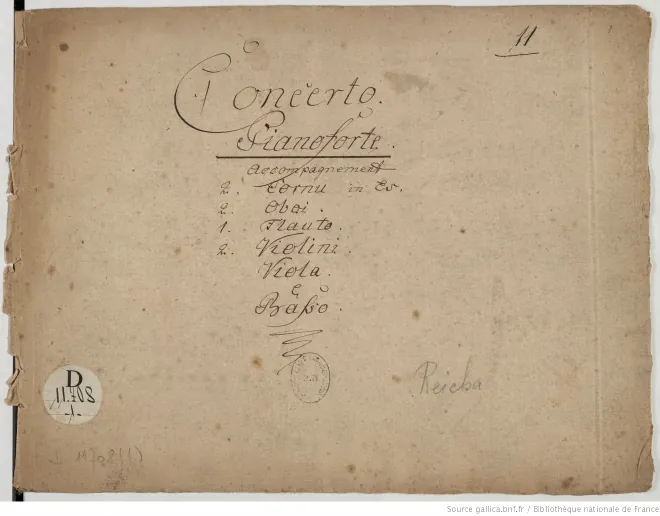 11
Concerto.
Pianoforte.
Accompagnement
2. Cornu in Es.
2. Oboi.
1. Flauto.
2. Violini.
Viola.
e
Baßo.
Reicha
D
11.708
-1-
D 11708(1)
Source gallica.bnf.fr / Bibliothèque nationale de France